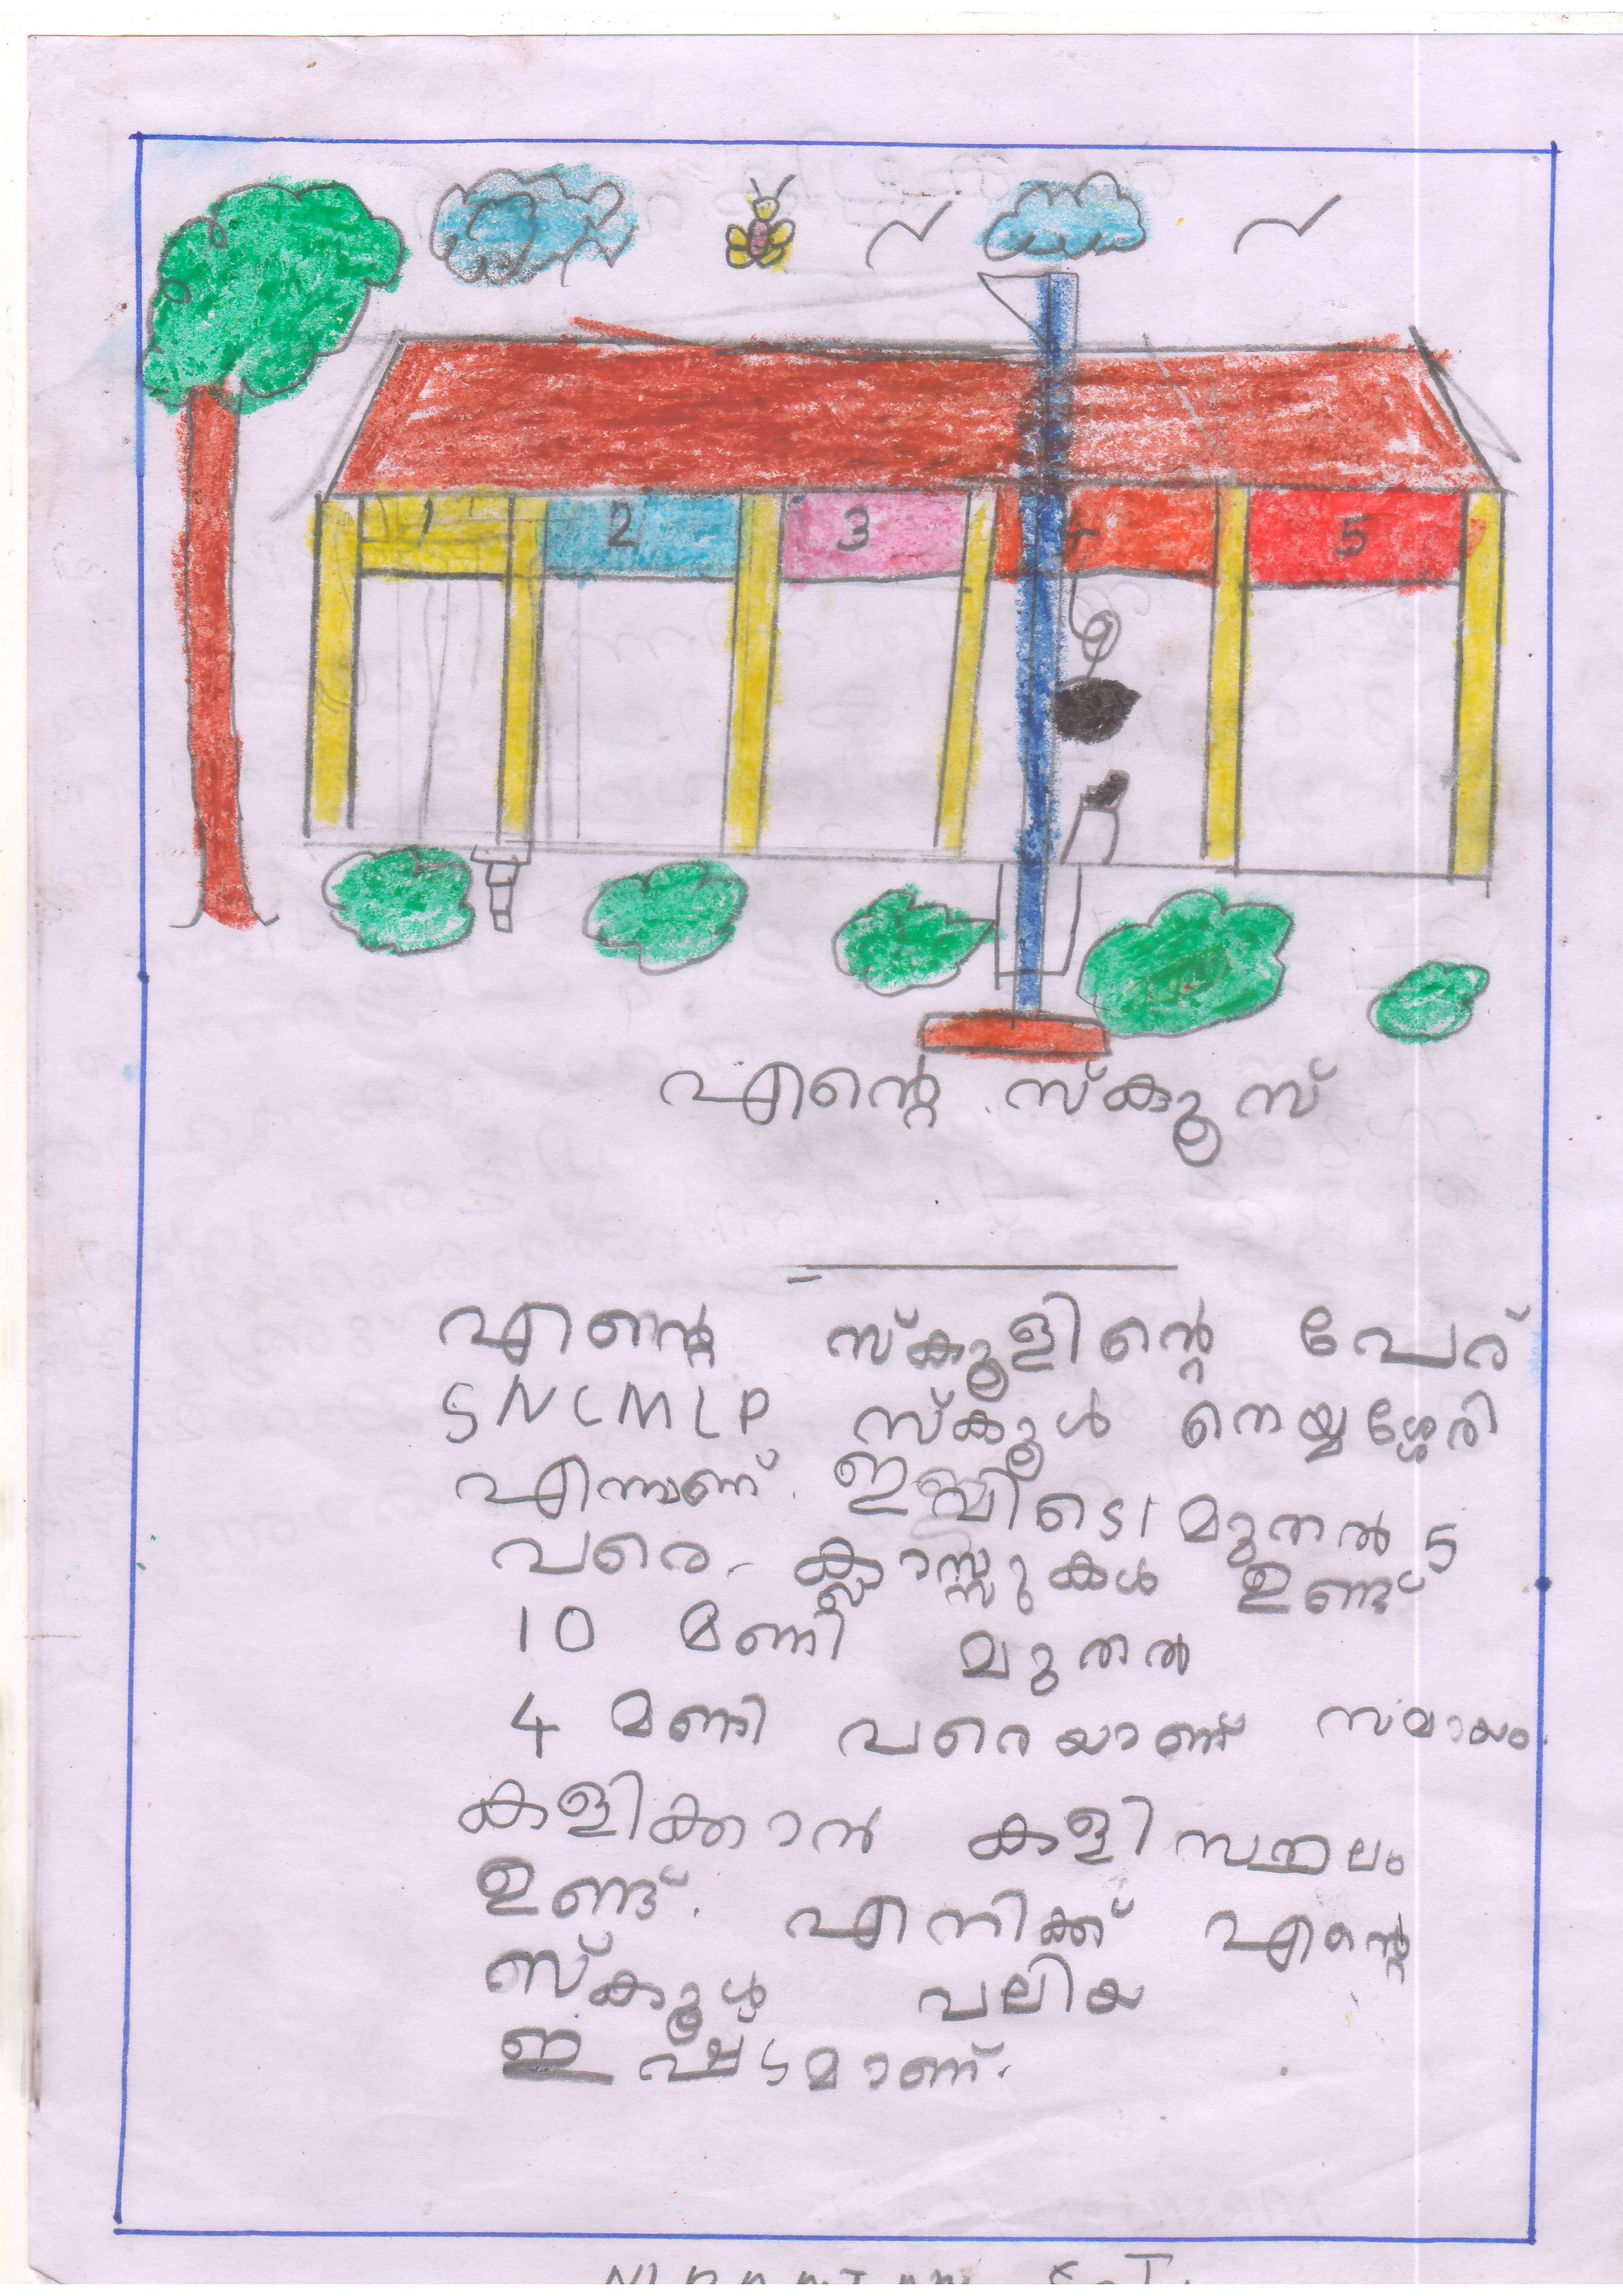 1 2 3 4 5
എന്റെ സ്കൂസ്
എന്റെ സ്കൂളിന്റെ പേര്
SNCMLP സ്കൂൾ നെയ്യശ്ശേരി
എന്നാണ്. ഇവിടെ 1 മുതൽ 5
വരെ ക്ലാസ്സുകൾ ഉണ്ട്
10 മണി മുതൽ
4 മണി വറെയാണ് സമായം.
കളിക്കാൻ കളി സ്ഥലം
ഉണ്ട്. എനിക്ക് എന്റെ
സ്കൂൾ വലിയ
ഇഷ്ടമാണ്.